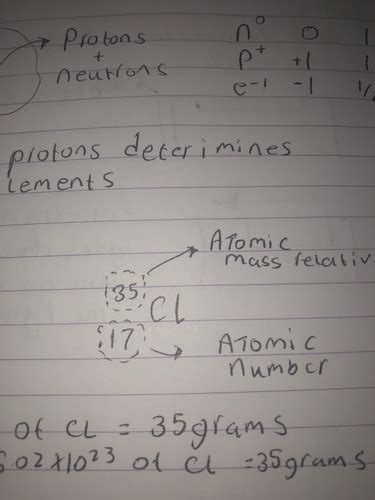 Protons n⁰ 0 1
+ p⁺ +1 1
neutrons e⁻¹ -1 1/
protons deterimines
lements
Atomic
mass relativ
35
Cl
17
Atomic
Number
of CL = 35grams
6.02×10²³ of CL =35grams